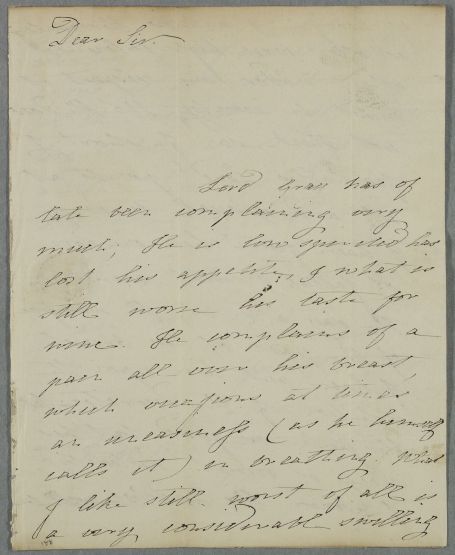 Dear Sir.
Lord Gray has of
late been complaining very
much; He is low spirited has
lost his appetite, & what is
still worse his taste for
wine. He complains of a
pain all over his breast,
which occasions at times
an uneasiness (as he himself
calls it) in breathing. What
I like still worst of all is
a very considerable swelling